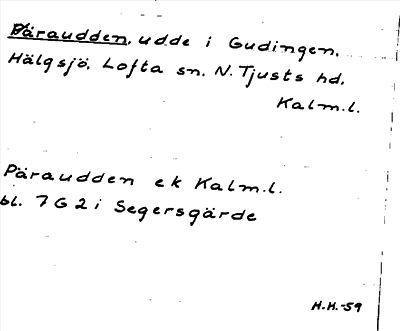 Päraudden, udde i Gudingen,
Hälgsjö. Lofta sn. N. Tjusts hd.
Kalm.l.
Päraudden ek Kalm.l.
bl. 7 G 2 i Segersgärde
H.H.-59